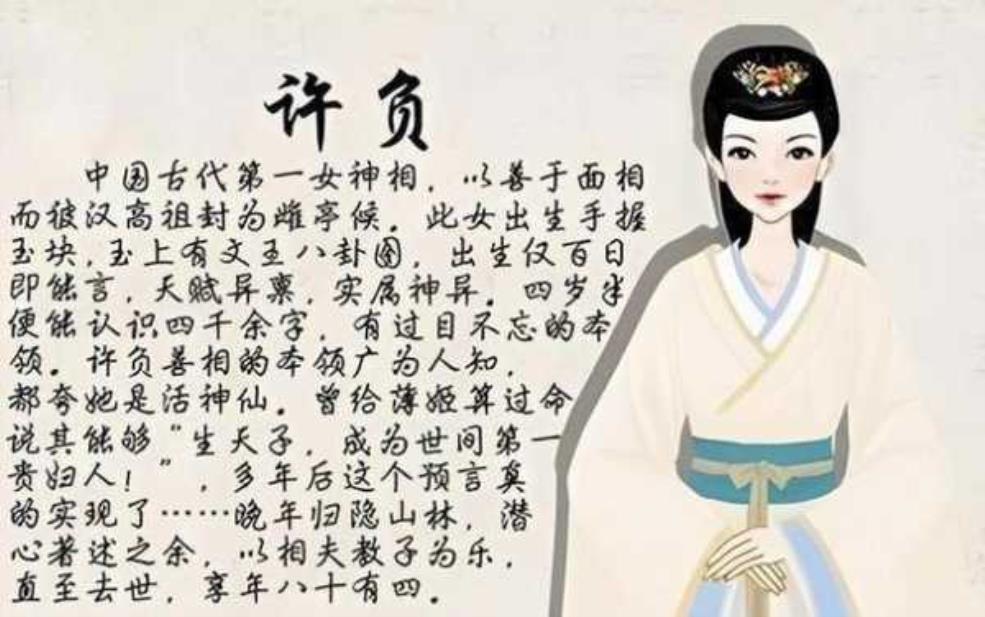 许负
中国古代第一女神相，以善于面相
而被汉高祖封为雌亭候。此女出生手握
玉块，玉上有文王八卦图，出生仅百日
即能言，天赋异禀，实属神异。四岁半
便能认识四千余字，有过目不忘的本
领。许负善相的本领广为人知，
都夸她是活神仙。曾给薄姬算过命
说其能够“生天子，成为世间第一
贵妇人！”，多年后这个预言莫
的实现了……晚年归隐山林，潜
心著述之余，以相夫教子为乐，
直至去世，享年八十有四。